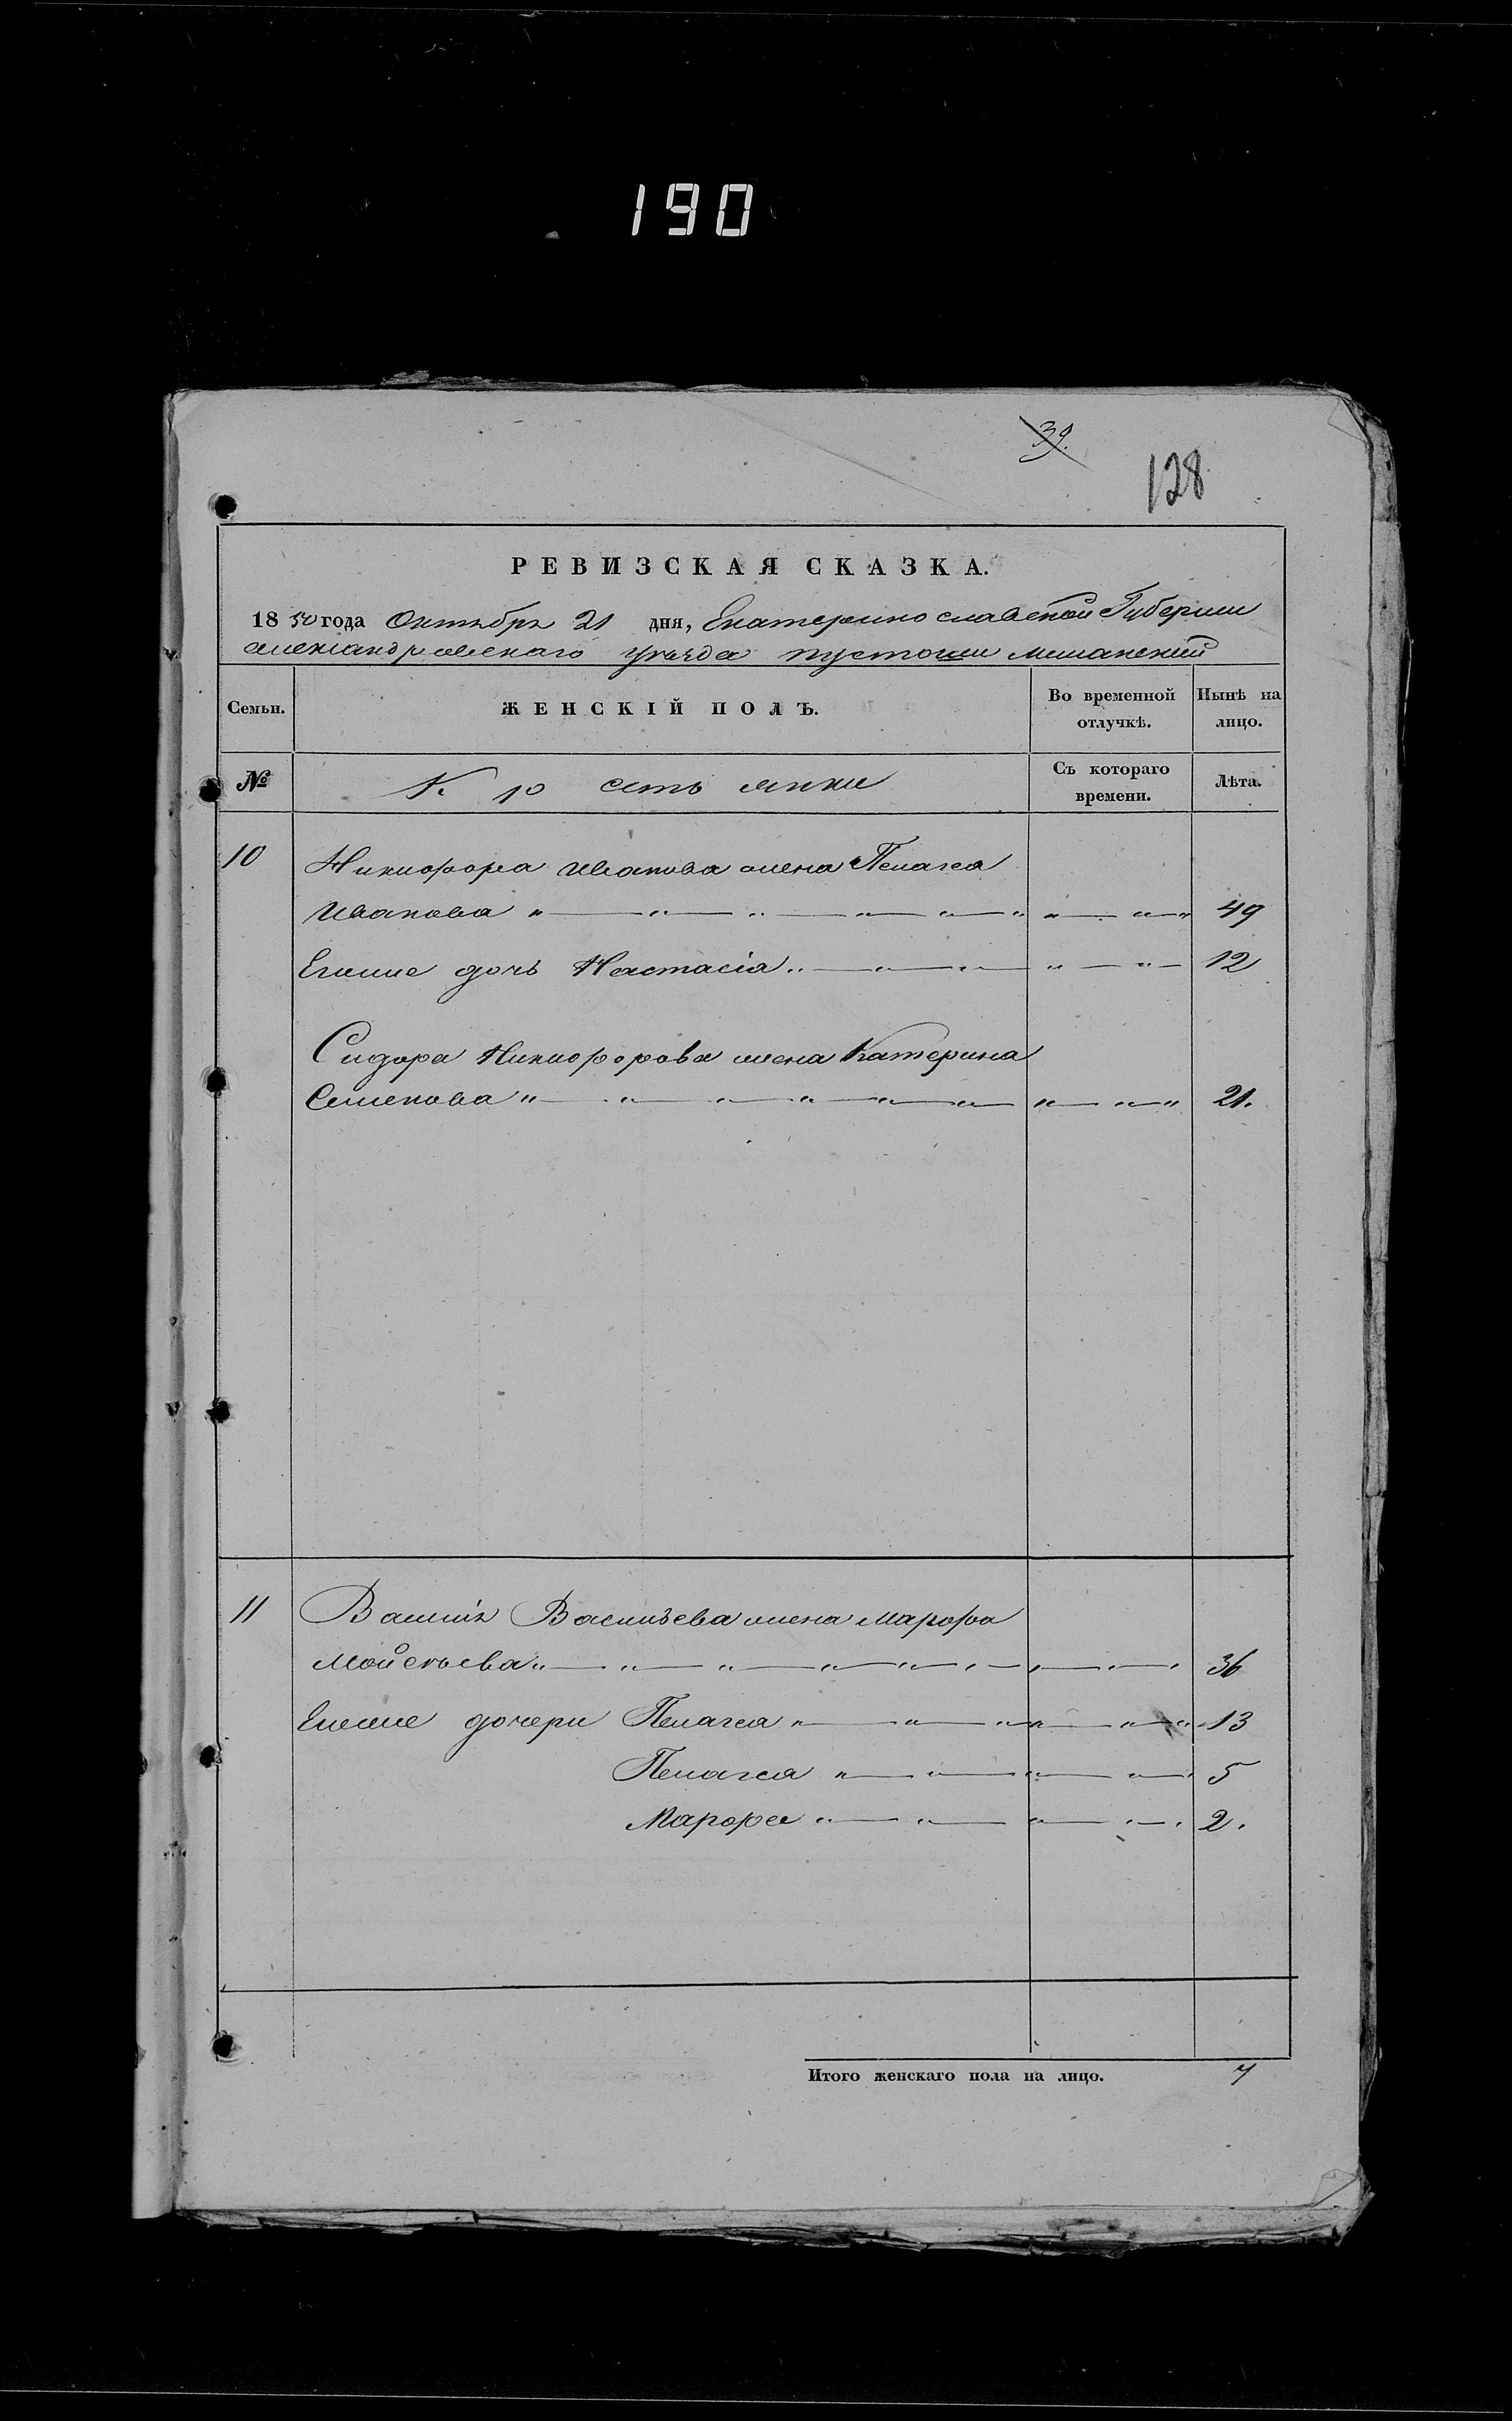 190
39.
128
РЕВИЗСКАЯ СКАЗКА.
1850 года Октября 21 дня, Екатеринославской Губернии
Александровскаго уѣзда пустоши
Семьи. ЖЕНСКІЙ ПОЛЪ. Во временной отлучкѣ. Нынѣ на лицо.
№ К р есть янки Съ котораго времени. Лѣта.
10 Никифора Иванова жена Пелагея
Иванова " — " — " — " — " — " " — " — " 49
Егоже дочь Настасія " — " — " — " — " — 12
Сидора Никифорова жена Катерина
Семенова " — " — " — " — " — " — " — " — " 21.
11 Васильева жена Марфа
Мойсѣева " — " — " — " — " — " — " — " — " 36
Егоже дочери Пелагея " — " — " " — " — " 13
Пелагея " — " — " — " — " 5
Марфа " — " — " — " — " 2.
Итого женскаго пола на лицо. 7